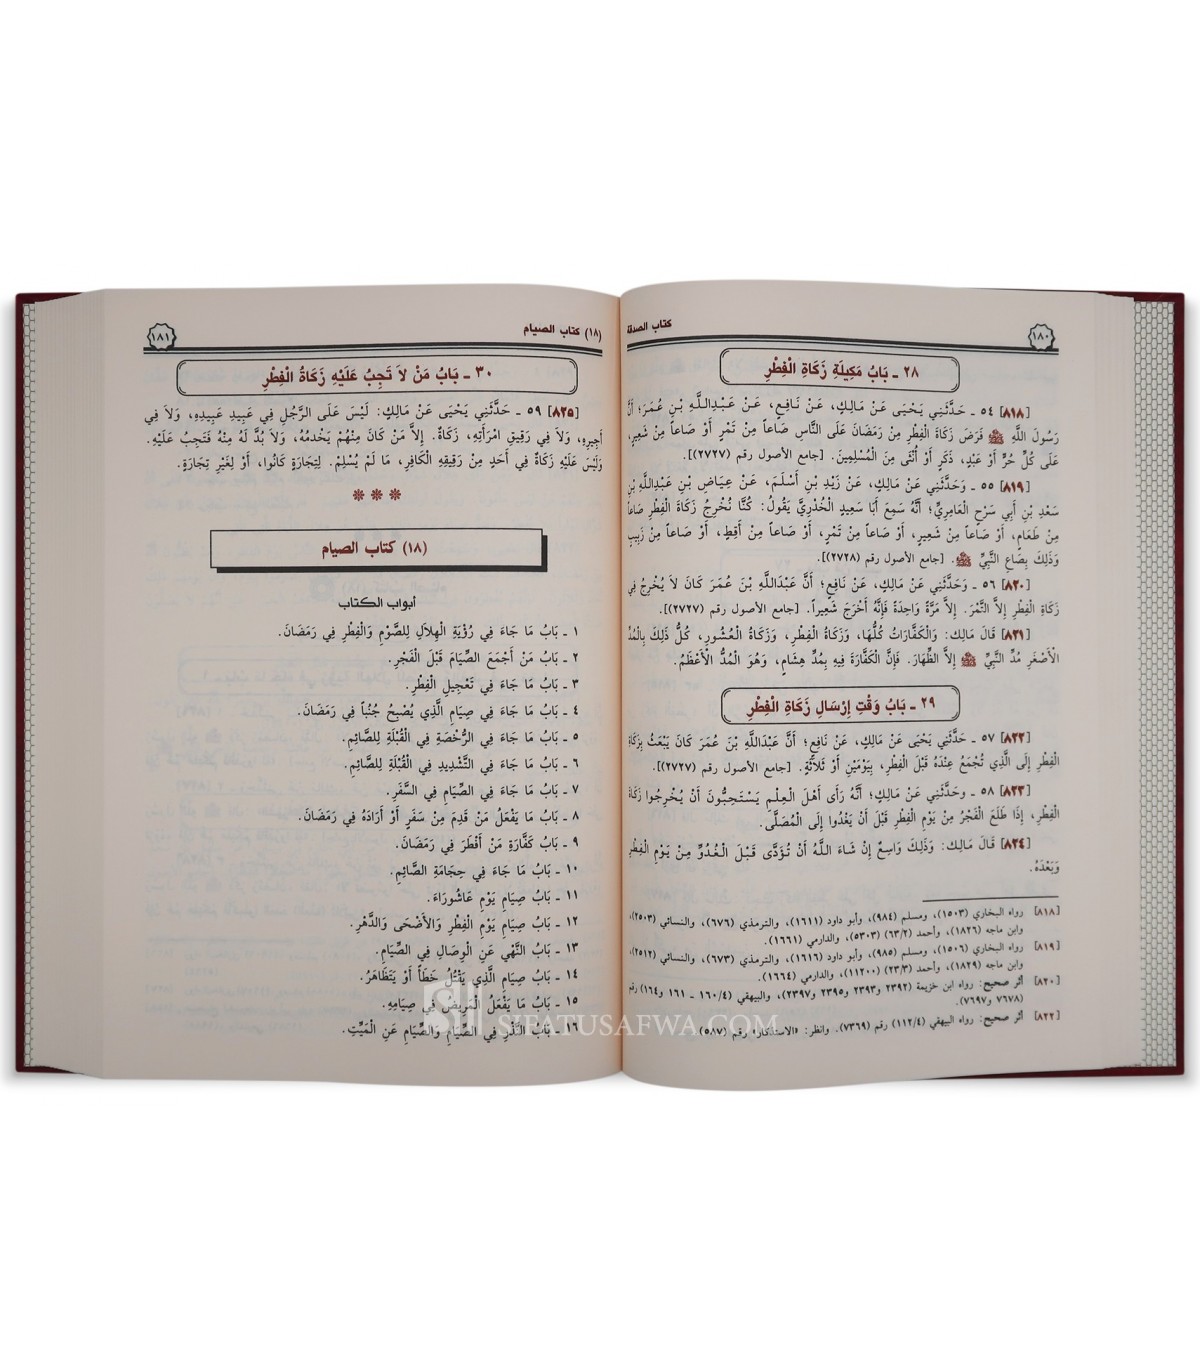 ١٨٠
كتاب الصدقة
٢٨ ـ بَابُ مَكِيلَةِ زَكَاةِ الْفِطْرِ
[٨١٨] ٥٤ ـ حَدَّثَنِي يَحْيَى عَنْ مَالِكٍ، عَنْ نَافِعٍ، عَنْ عَبْدِاللَّهِ بْنِ عُمَرَ؛ أَنَّ
رَسُولَ اللَّهِ ﷺ فَرَضَ زَكَاةَ الْفِطْرِ مِنْ رَمَضَانَ عَلَى النَّاسِ صَاعاً مِنْ تَمْرٍ أَوْ صَاعاً مِنْ شَعِيرٍ،
عَلَى كُلِّ حُرٍّ أَوْ عَبْدٍ، ذَكَرٍ أَوْ أُنْثَى مِنَ الْمُسْلِمِينَ. [جامع الأصول رقم (٢٧٢٧)].
[٨١٩] ٥٥ ـ وَحَدَّثَنِي عَنْ مَالِكٍ، عَنْ زَيْدِ بْنِ أَسْلَمَ، عَنْ عِيَاضِ بْنِ عَبْدِاللَّهِ بْنِ
سَعْدِ بْنِ أَبِي سَرْحٍ الْعَامِرِيِّ؛ أَنَّهُ سَمِعَ أَبَا سَعِيدٍ الْخُدْرِيَّ يَقُولُ: كُنَّا نُخْرِجُ زَكَاةَ الْفِطْرِ صَاعاً
مِنْ طَعَامٍ، أَوْ صَاعاً مِنْ شَعِيرٍ، أَوْ صَاعاً مِنْ تَمْرٍ، أَوْ صَاعاً مِنْ أَقِطٍ، أَوْ صَاعاً مِنْ زَبِيبٍ
وَذَلِكَ بِصَاعِ النَّبِيِّ ﷺ. [جامع الأصول رقم (٢٧٢٨)].
[٨٢٠] ٥٦ ـ وَحَدَّثَنِي عَنْ مَالِكٍ، عَنْ نَافِعٍ؛ أَنَّ عَبْدَاللَّهِ بْنَ عُمَرَ كَانَ لاَ يُخْرِجُ فِي
زَكَاةِ الْفِطْرِ إِلاَّ التَّمْرَ. إِلاَّ مَرَّةً وَاحِدَةً فَإِنَّهُ أَخْرَجَ شَعِيراً. [جامع الأصول رقم (٢٧٢٧)].
[٨٢١] قَالَ مَالِك: وَالْكَفَّارَاتُ كُلُّهَا، وَزَكَاةُ الْفِطْرِ، وَزَكَاةُ الْعُشُورِ، كُلُّ ذَلِكَ بِالْمُدِّ
الْأَصْغَرِ مُدِّ النَّبِيِّ ﷺ إِلاَّ الظِّهَارَ. فَإِنَّ الْكَفَّارَةَ فِيهِ بِمُدِّ هِشَامٍ، وَهُوَ الْمُدُّ الْأَعْظَمُ.
٢٩ ـ بَابُ وَقْتِ إِرْسَالِ زَكَاةِ الْفِطْرِ
[٨٢٢] ٥٧ ـ حَدَّثَنِي يَحْيَى عَنْ مَالِكٍ، عَنْ نَافِعٍ؛ أَنَّ عَبْدَاللَّهِ بْنَ عُمَرَ كَانَ يَبْعَثُ بِزَكَاةِ
الْفِطْرِ إِلَى الَّذِي تُجْمَعُ عِنْدَهُ قَبْلَ الْفِطْرِ، بِيَوْمَيْنِ أَوْ ثَلاَثَةٍ. [جامع الأصول رقم (٢٧٢٧)].
[٨٢٣] ٥٨ ـ وحَدَّثَنِي عَنْ مَالِكٍ؛ أَنَّهُ رَأَى أَهْلَ الْعِلْمِ يَسْتَحِبُّونَ أَنْ يُخْرِجُوا زَكَاةَ
الْفِطْرِ، إِذَا طَلَعَ الْفَجْرُ مِنْ يَوْمِ الْفِطْرِ قَبْلَ أَنْ يَغْدُوا إِلَى الْمُصَلَّى.
[٨٢٤] قَالَ مَالِك: وَذَلِكَ وَاسِعٌ إِنْ شَاءَ اللَّهُ أَنْ تُؤَدَّى قَبْلَ الْغُدُوِّ مِنْ يَوْمِ الْفِطْرِ
وَبَعْدَهُ.
[٨١٨] رواه البخاري (١٥٠٣)، ومسلم (٩٨٤)، وأبو داود (١٦١١)، والترمذي (٦٧٦)، والنسائي (٢٥٠٣)،
وابن ماجه (١٨٢٦)، وأحمد (٦٣/٢) (٥٣٠٣)، والدارمي (١٦٦١).
[٨١٩] رواه البخاري (١٥٠٦)، ومسلم (٩٨٥)، وأبو داود (١٦١٦)، والترمذي (٦٧٣)، والنسائي (٢٥١٢)،
وابن ماجه (١٨٢٩)، وأحمد (٢٣/٣) (١١٢٠٠)، والدارمي (١٦٦٤).
[٨٢٠] أثر صحيح: رواه ابن خزيمة (٢٣٩٢ و٢٣٩٣ و٢٣٩٥ و٢٣٩٧)، والبيهقي (١٦٠/٤ ـ ١٦١ و١٦٤) رقم
(٧٦٧٨ و٧٦٩٧).
[٨٢٢] أثر صحيح: رواه البيهقي (١١٢/٤) رقم (٧٣٦٩). وانظر: «الاستذكار» رقم (٥٨٧)
(١٨) كتاب الصيام
١٨١
٣٠ ـ بَابُ مَنْ لاَ تَجِبُ عَلَيْهِ زَكَاةُ الْفِطْرِ
[٨٢٥] ٥٩ ـ حَدَّثَنِي يَحْيَى عَنْ مَالِكٍ: لَيْسَ عَلَى الرَّجُلِ فِي عَبِيدِ عَبِيدِهِ، وَلاَ فِي
أَجِيرِهِ، وَلاَ فِي رَقِيقِ امْرَأَتِهِ، زَكَاةٌ. إِلاَّ مَنْ كَانَ مِنْهُمْ يَخْدُمُهُ، وَلاَ بُدَّ لَهُ مِنْهُ فَتَجِبُ عَلَيْهِ.
وَلَيْسَ عَلَيْهِ زَكَاةٌ فِي أَحَدٍ مِنْ رَقِيقِهِ الْكَافِرِ، مَا لَمْ يُسْلِمْ. لِتِجَارَةٍ كَانُوا، أَوْ لِغَيْرِ تِجَارَةٍ.
(١٨) كتاب الصيام
أبواب الكتاب
١ ـ بَابُ مَا جَاءَ فِي رُؤْيَةِ الْهِلاَلِ لِلصَّوْمِ وَالْفِطْرِ فِي رَمَضَانَ.
٢ ـ بَابُ مَنْ أَجْمَعَ الصِّيَامَ قَبْلَ الْفَجْرِ.
٣ ـ بَابُ مَا جَاءَ فِي تَعْجِيلِ الْفِطْرِ.
٤ ـ بَابُ مَا جَاءَ فِي صِيَامِ الَّذِي يُصْبِحُ جُنُباً فِي رَمَضَانَ.
٥ ـ بَابُ مَا جَاءَ فِي الرُّخْصَةِ فِي الْقُبْلَةِ لِلصَّائِمِ.
٦ ـ بَابُ مَا جَاءَ فِي التَّشْدِيدِ فِي الْقُبْلَةِ لِلصَّائِمِ.
٧ ـ بَابُ مَا جَاءَ فِي الصِّيَامِ فِي السَّفَرِ.
٨ ـ بَابُ مَا يَفْعَلُ مَنْ قَدِمَ مِنْ سَفَرٍ أَوْ أَرَادَهُ فِي رَمَضَانَ.
٩ ـ بَابُ كَفَّارَةِ مَنْ أَفْطَرَ فِي رَمَضَانَ.
١٠ ـ بَابُ مَا جَاءَ فِي حِجَامَةِ الصَّائِمِ.
١١ ـ بَابُ صِيَامِ يَوْمِ عَاشُورَاءَ.
١٢ ـ بَابُ صِيَامِ يَوْمِ الْفِطْرِ وَالأَضْحَى وَالدَّهْرِ.
١٣ ـ بَابُ النَّهْيِ عَنِ الْوِصَالِ فِي الصِّيَامِ.
١٤ ـ بَابُ صِيَامِ الَّذِي يَقْتُلُ خَطَأً أَوْ يَتَظَاهَرُ.
١٥ ـ بَابُ مَا يَفْعَلُ الْمَرِيضُ فِي صِيَامِهِ.
١٦ ـ بَابُ النَّذْرِ فِي الصِّيَامِ وَالصِّيَامِ عَنِ الْمَيِّتِ.
SIFATUSAFWA.COM